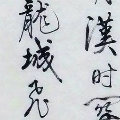 漢时
龍城飛